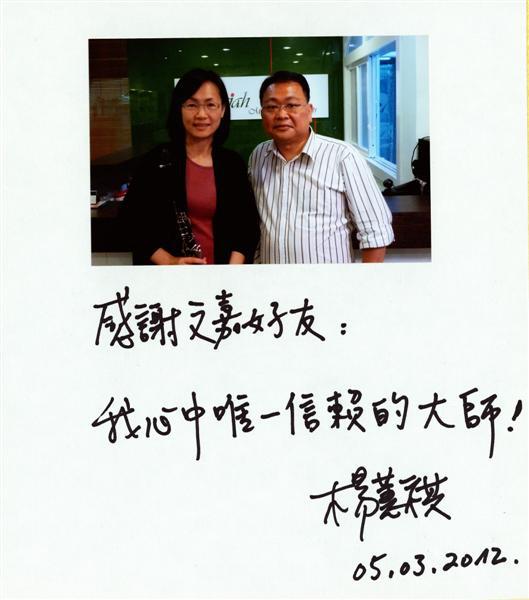 iah
感謝文嘉好友：
我心中唯一信賴的大師！
楊蕙祺
05.03.2012.